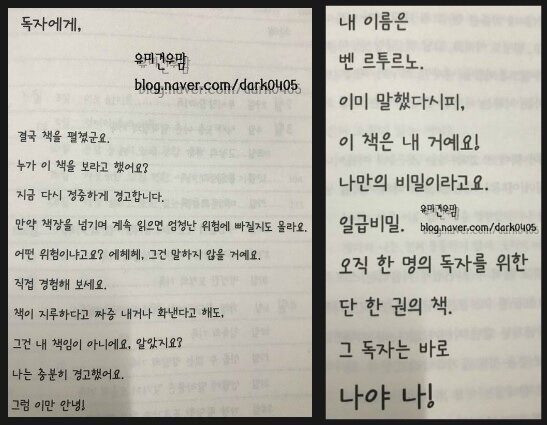 독자에게,
유미건우맘
blog.naver.com/dark0405
결국 책을 펼쳤군요.
누가 이 책을 보라고 했어요?
지금 다시 정중하게 경고합니다.
만약 책장을 넘기며 계속 읽으면 엄청난 위험에 빠질지도 몰라요.
어떤 위험이냐고요? 에헤헤, 그건 말하지 않을 거예요.
직접 경험해 보세요.
책이 지루하다고 짜증 내거나 화낸다고 해도,
그건 내 책임이 아니에요. 알았지요?
나는 충분히 경고했어요.
그럼 이만 안녕!
내 이름은
벤 르투르노.
이미 말했다시피,
이 책은 내 거예요!
나만의 비밀이라고요.
일급비밀.
유미건우맘
blog.naver.com/dark0405
오직 한 명의 독자를 위한
단 한 권의 책.
그 독자는 바로
나야 나!